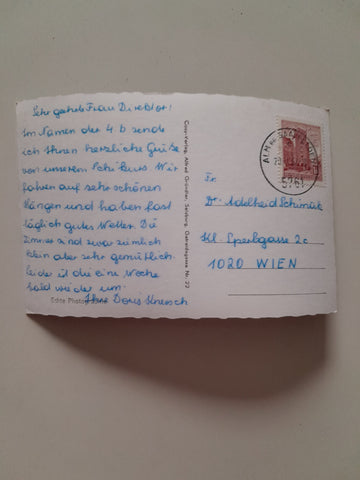 Sehr geehrte Frau Direktor!
Im Namen der 4 b sende
ich Ihnen herzliche Grüße
von unserem Schikurs. Wir
fahren auf sehr schönen
Hängen und haben fast
täglich gutes Wetter. Die
Zimmer sind zwar ziemlich
klein aber sehr gemütlich.
Leider ist die eine Woche
bald wieder um.
Ihre Doris
Echte Photographie
Cosy-Verlag, Alfred Gründler, Salzburg, Gabelsbergerstr. Nr. 22
5761
Fr.
Dr. Adelheid
Kl. Sperlgasse 2c
1020 WIEN